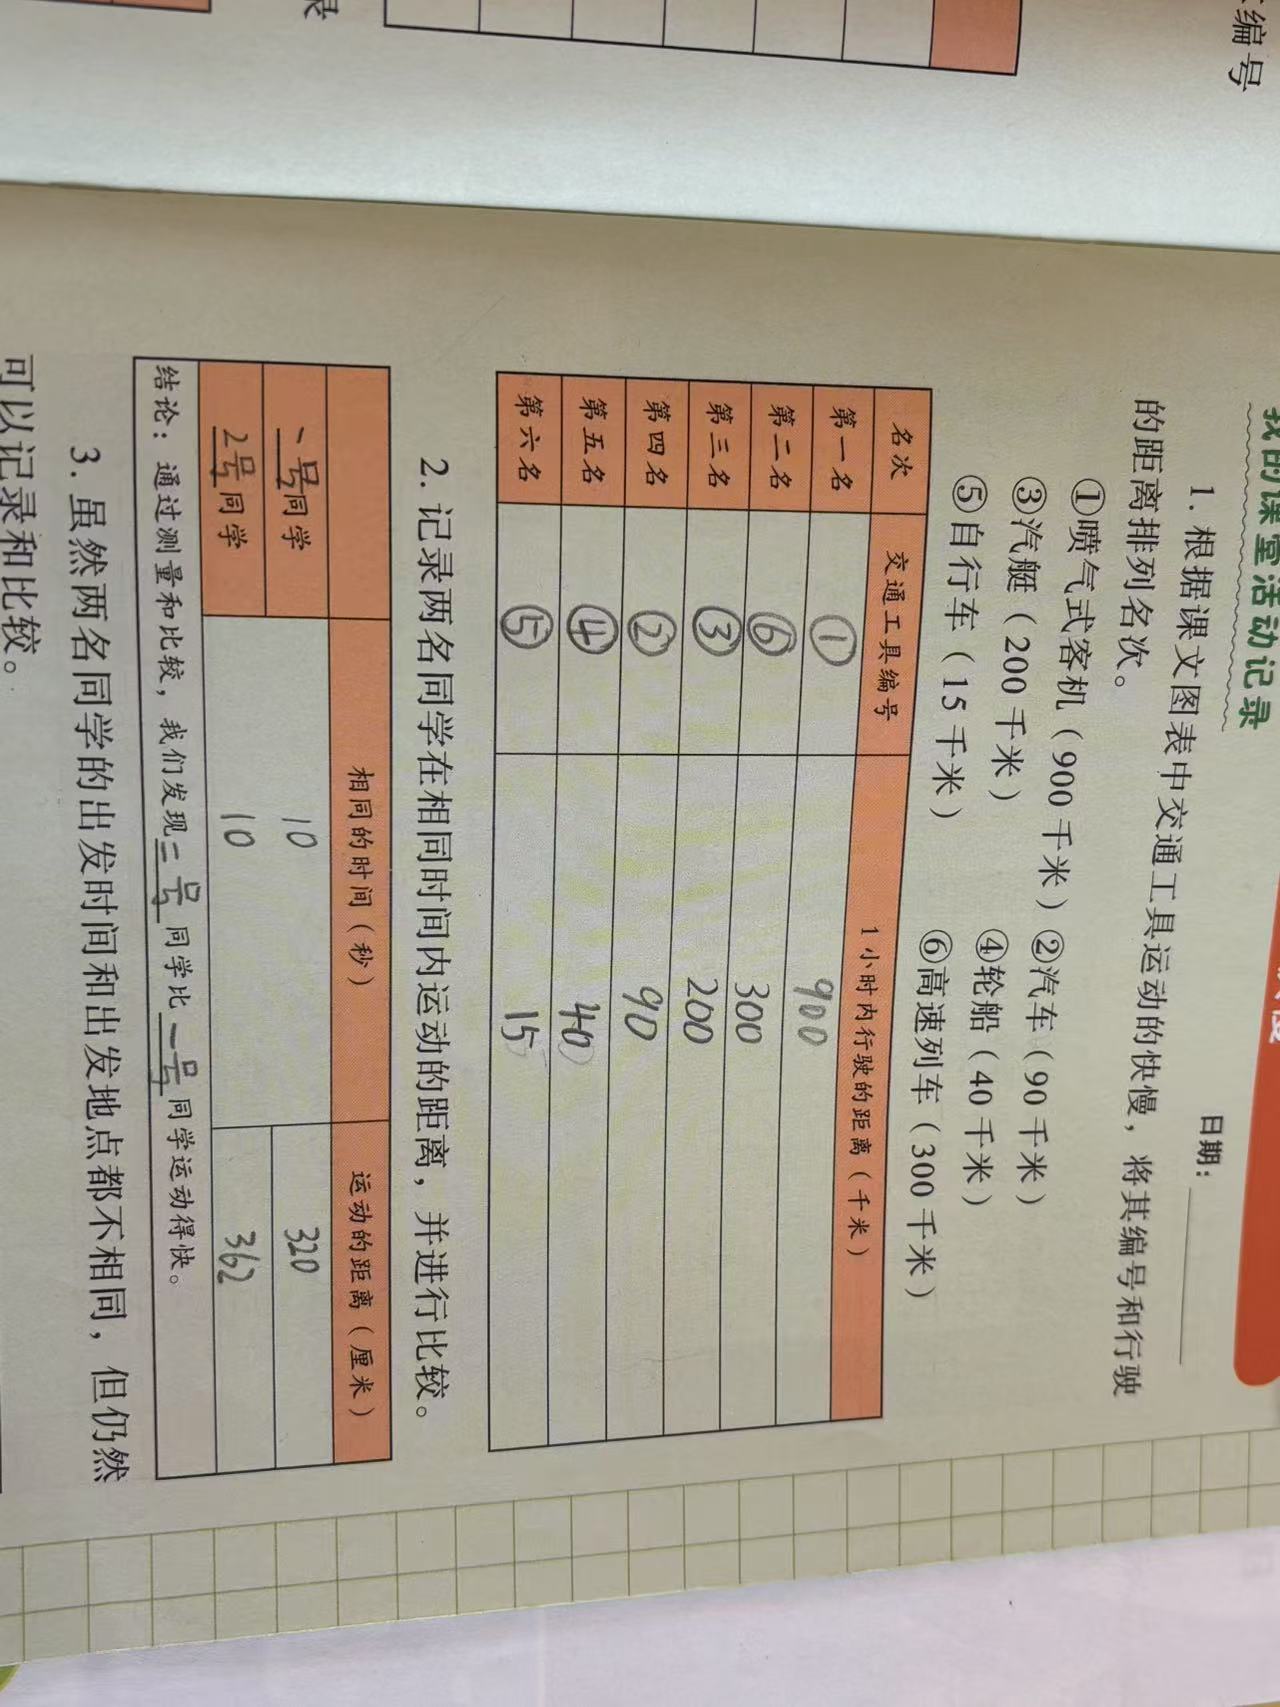 编号
我的课堂活动记录
日期：
1. 根据课文图表中交通工具运动的快慢，将其编号和行驶
的距离排列名次。
①喷气式客机（900千米）②汽车（90千米）
③汽艇（200千米） ④轮船（40千米）
⑤自行车（15千米） ⑥高速列车（300千米）
名次 交通工具编号 1小时内行驶的距离（千米）
第一名 ① 900
第二名 ⑥ 300
第三名 ③ 200
第四名 ② 90
第五名 ④ 40
第六名 ⑤ 15
2. 记录两名同学在相同时间内运动的距离，并进行比较。
相同的时间（秒） 运动的距离（厘米）
一号同学 10 320
2号同学 10 362
结论：通过测量和比较，我们发现二号同学比一号同学运动得快。
3. 虽然两名同学的出发时间和出发地点都不相同，但仍然
可以记录和比较。